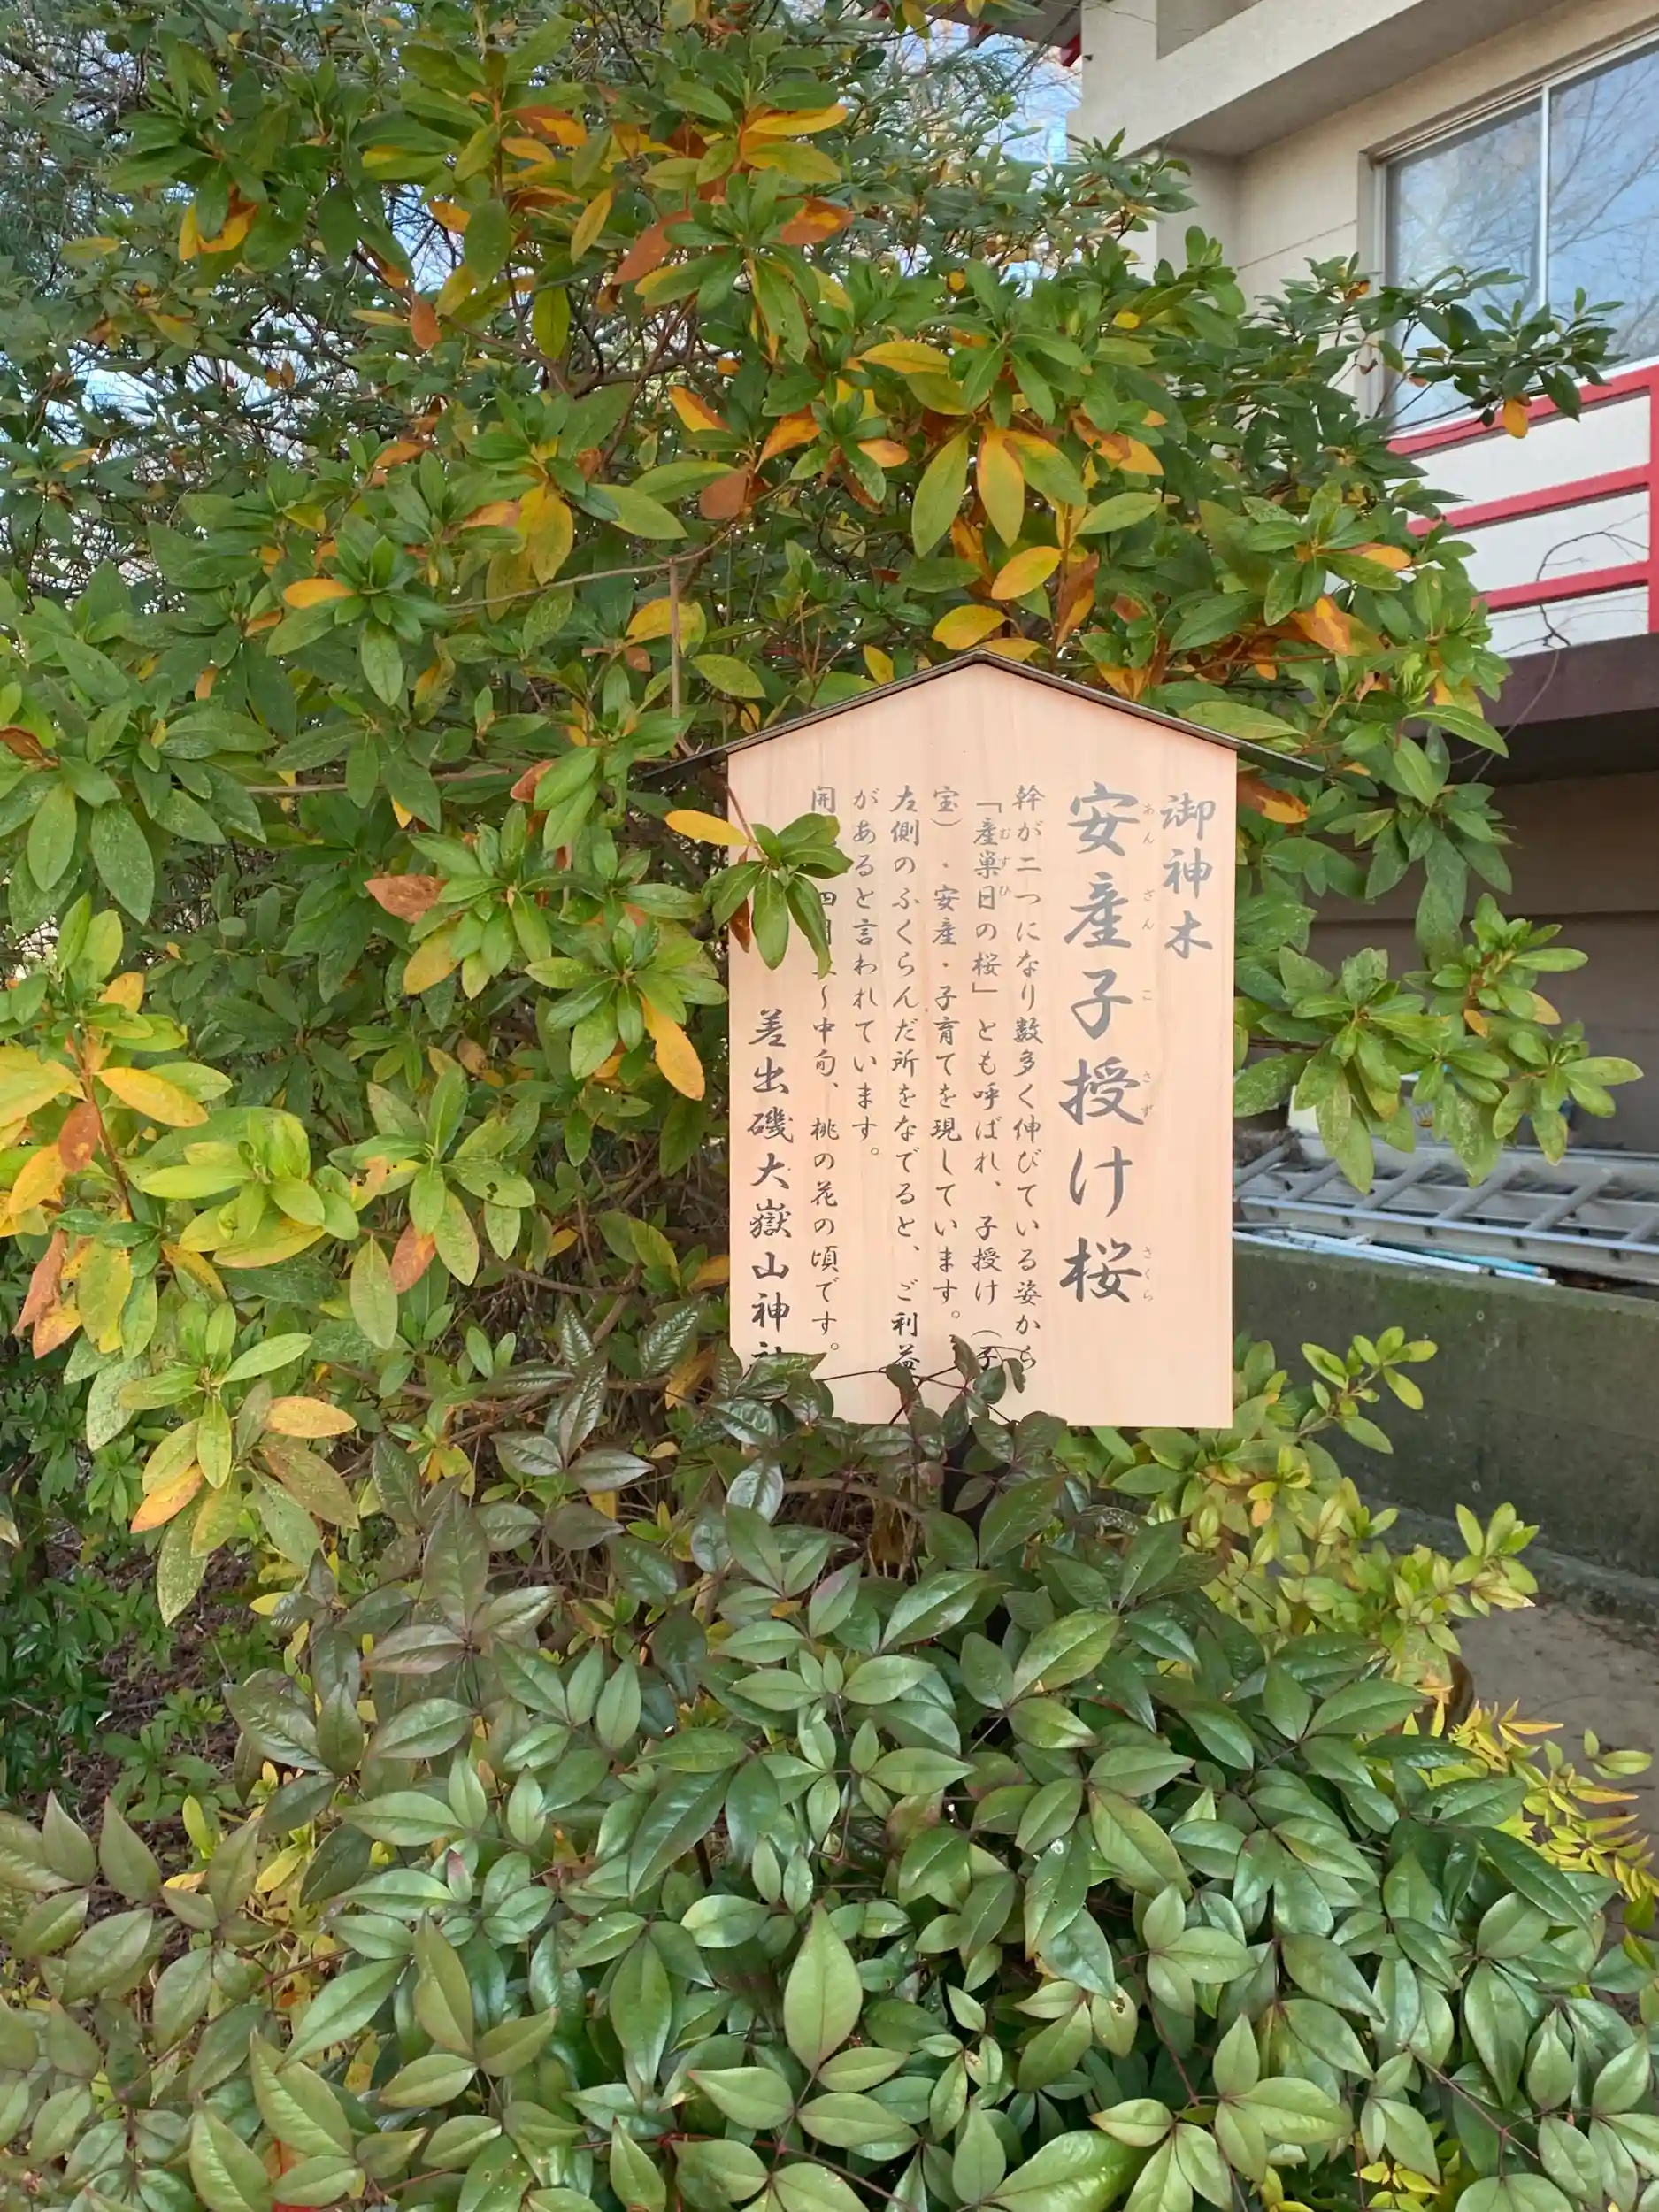 御神木
安産子授け桜
あん ざん こ さず さくら
幹が二つになり数多く伸びている姿から
「産巣日の桜」とも呼ばれ、子授け（子
むすひ
宝）・安産・子育てを現しています。
左側のふくらんだ所をなでると、ご利益
があると言われています。
開 四月 〜中旬、桃の花の頃です。
差出磯大嶽山神社